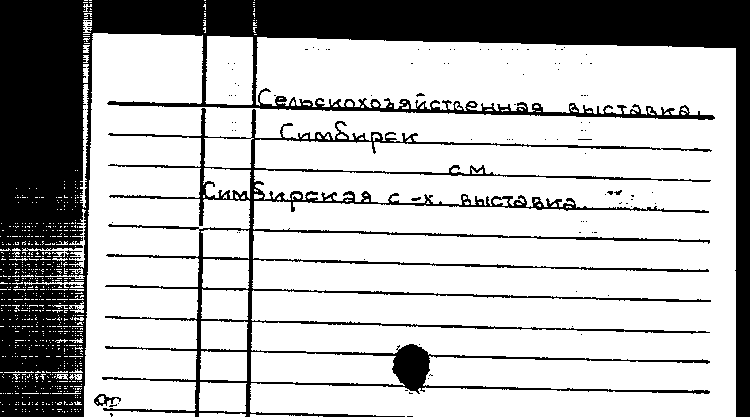 Сельскохозяйственная выставка.
Симбирск
см.
Симбирская с-х. выставка.
от